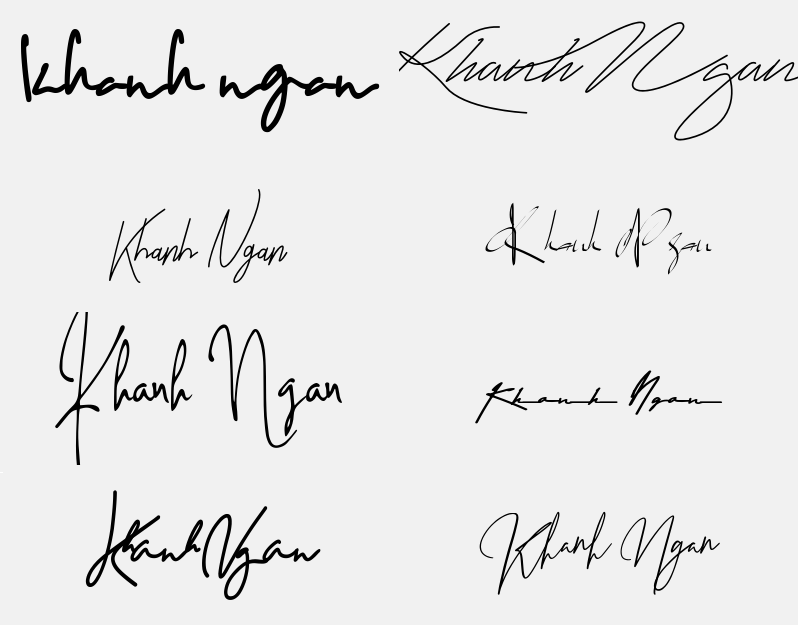 khanh ngan
Khanh Ngan
Khanh Ngan
Khanh Ngan
Khanh Ngan
Khanh Ngan
Khanh Ngan
Khanh Ngan